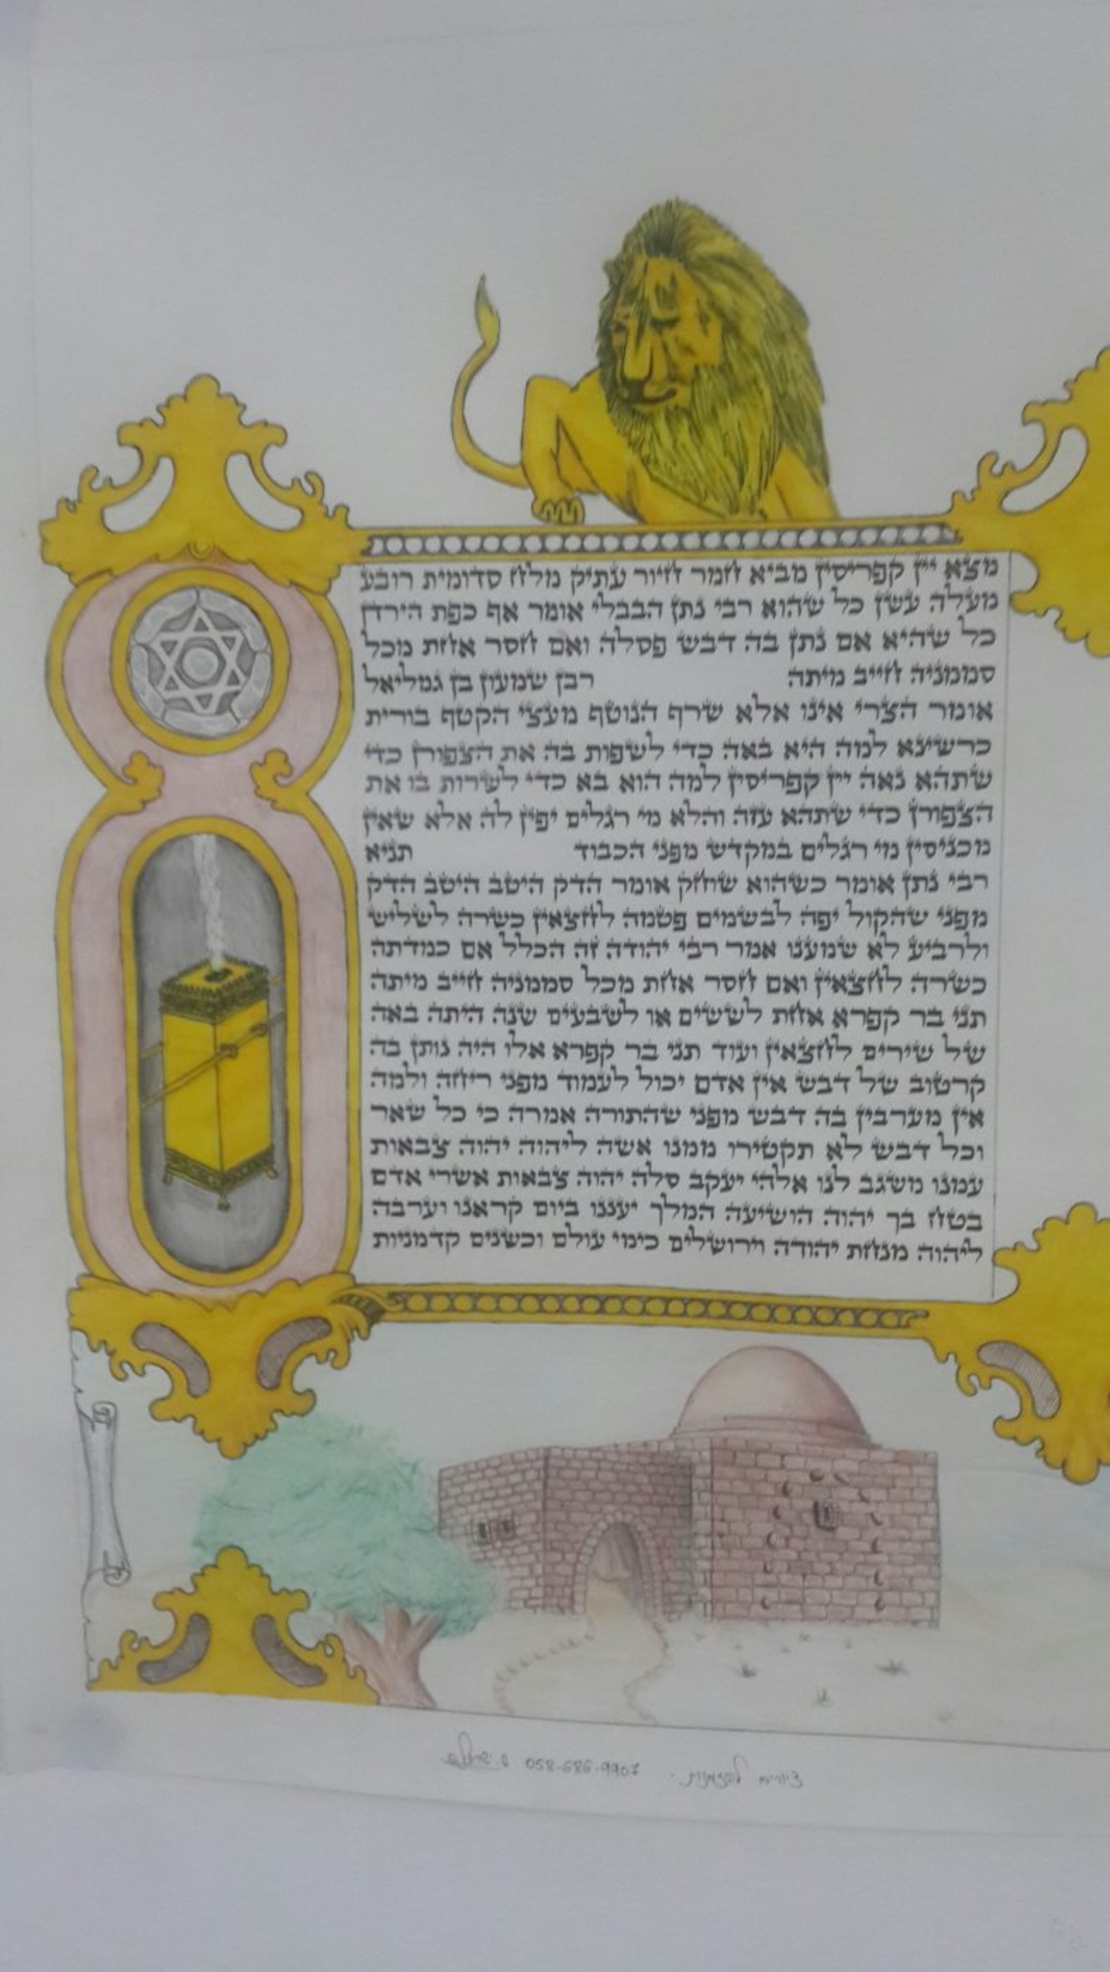 מצא יין קפריסין מביא חמר חיור עתיק מלח סדומית רובע
מעלה עשן כל שהוא רבי נתן הבבלי אומר אף כפת הירדן
כל שהיא אם נתן בה דבש פסלה ואם חסר אחת מכל
סממניה חייב מיתה רבן שמעון בן גמליאל
אומר הצרי אינו אלא שרף הנוטף מעצי הקטף בורית
כרשינא למה היא באה כדי לשפות בה את הצפורן כדי
שתהא נאה יין קפריסין למה הוא בא כדי לשרות בו את
הצפורן כדי שתהא עזה והלא מי רגלים יפין לה אלא שאין
מכניסין מי רגלים במקדש מפני הכבוד תניא
רבי נתן אומר כשהוא שוחק אומר הדק היטב היטב הדק
מפני שהקול יפה לבשמים פטמה לחצאין כשרה לשליש
ולרביע לא שמענו אמר רבי יהודה זה הכלל אם כמדתה
כשרה לחצאין ואם חסר אחת מכל סממניה חייב מיתה
תני בר קפרא אחת לששים או לשבעים שנה היתה באה
של שירים לחצאין ועוד תני בר קפרא אלו היה נותן בה
קרטוב של דבש אין אדם יכול לעמוד מפני ריחה ולמה
אין מערבין בה דבש מפני שהתורה אמרה כי כל שאר
וכל דבש לא תקטירו ממנו אשה ליהוה יהוה צבאות
עמנו משגב לנו אלהי יעקב סלה יהוה צבאות אשרי אדם
בטח בך יהוה הושיעה המלך יעננו ביום קראנו וערבה
ליהוה מנחת יהודה וירושלים כימי עולם וכשנים קדמניות
058-686-9907